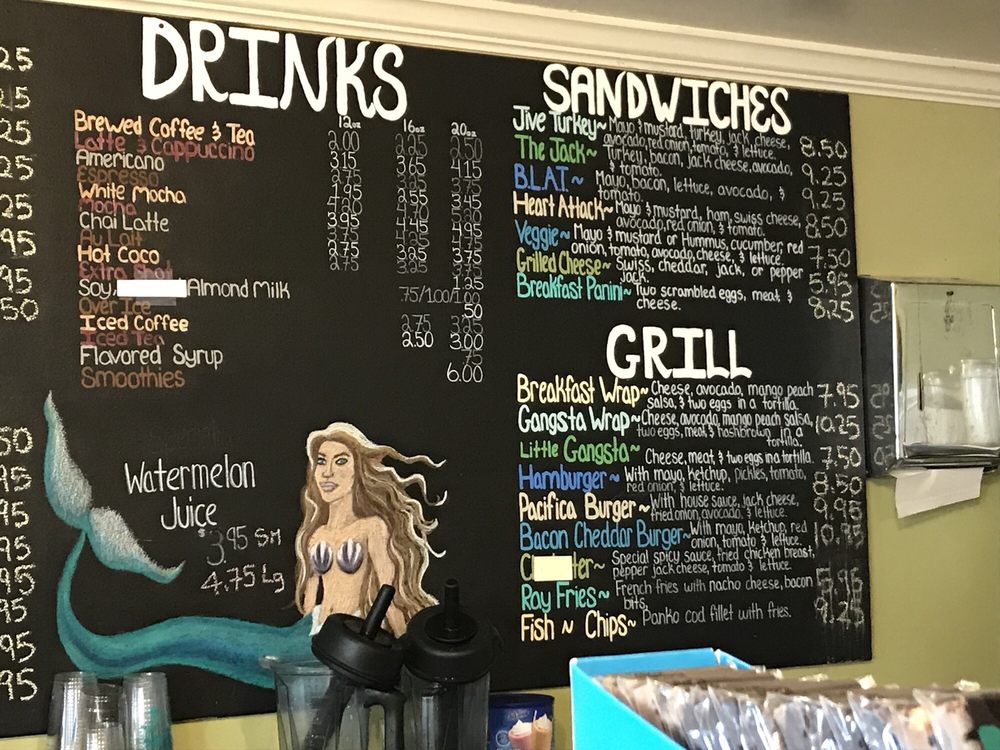 25
25
25
25
25
95
95
50
50
95
95
95
95
95
95
95
DRINKS
12oz 16oz 20oz
Brewed Coffee & Tea 2.00 2.25 2.50
Latte & Cappuccino
Americano 3.15 3.65 4.15
Espresso
White Mocha
Mocha
Chai Latte 3.95 4.45 4.95
Au Lait
Hot Coco 2.75 3.25 3.75
Extra Shot 1.25
Soy, Almond Milk .75/1.00/1.00
Over Ice .50
Iced Coffee 2.75 3.25
Iced Tea 2.50 3.00
Flavored Syrup .75
Smoothies 6.00
Watermelon
Juice
$3.95 Sm
4.75 Lg
SANDWICHES
Jive Turkey~ Mayo & mustard, turkey, jack cheese,
avocado, red onion, tomato, & lettuce. 8.50
The Jack~ Turkey, bacon, jack cheese, avocado,
& tomato. 9.25
B.L.A.T.~ Mayo, bacon, lettuce, avocado, &
tomato. 9.25
Heart Attack~ Mayo & mustard, ham, swiss cheese,
avocado, red onion, & tomato. 8.50
Veggie~ Mayo & mustard or Hummus, cucumber, red
onion, tomato, avocado, cheese, & lettuce. 7.50
Grilled Cheese~ Swiss, cheddar, jack, or pepper
jack. 5.95
Breakfast Panini~ Two scrambled eggs, meat &
cheese. 8.25
GRILL
Breakfast Wrap~ Cheese, avocado, mango peach
salsa, & two eggs in a tortilla. 7.95
Gangsta Wrap~ Cheese, avocado, mango peach salsa,
two eggs, meat & hashbrown in a
tortilla. 10.25
Little Gangsta~ Cheese, meat, & two eggs in a tortilla 7.50
Hamburger~ With mayo, ketchup, pickles, tomato,
red onion, & lettuce. 8.50
Pacifica Burger~ With house sauce, jack cheese,
fried onion, avocado, & lettuce. 9.95
Bacon Cheddar Burger~ With mayo, ketchup, red
onion, tomato & lettuce. 10.95
C ter~ Special spicy sauce, fried chicken breast,
pepper jack cheese, tomato & lettuce.
Ray Fries~ French fries with nacho cheese, bacon
bits. 5.95
Fish ~ Chips~ Panko cod fillet with fries. 9.25